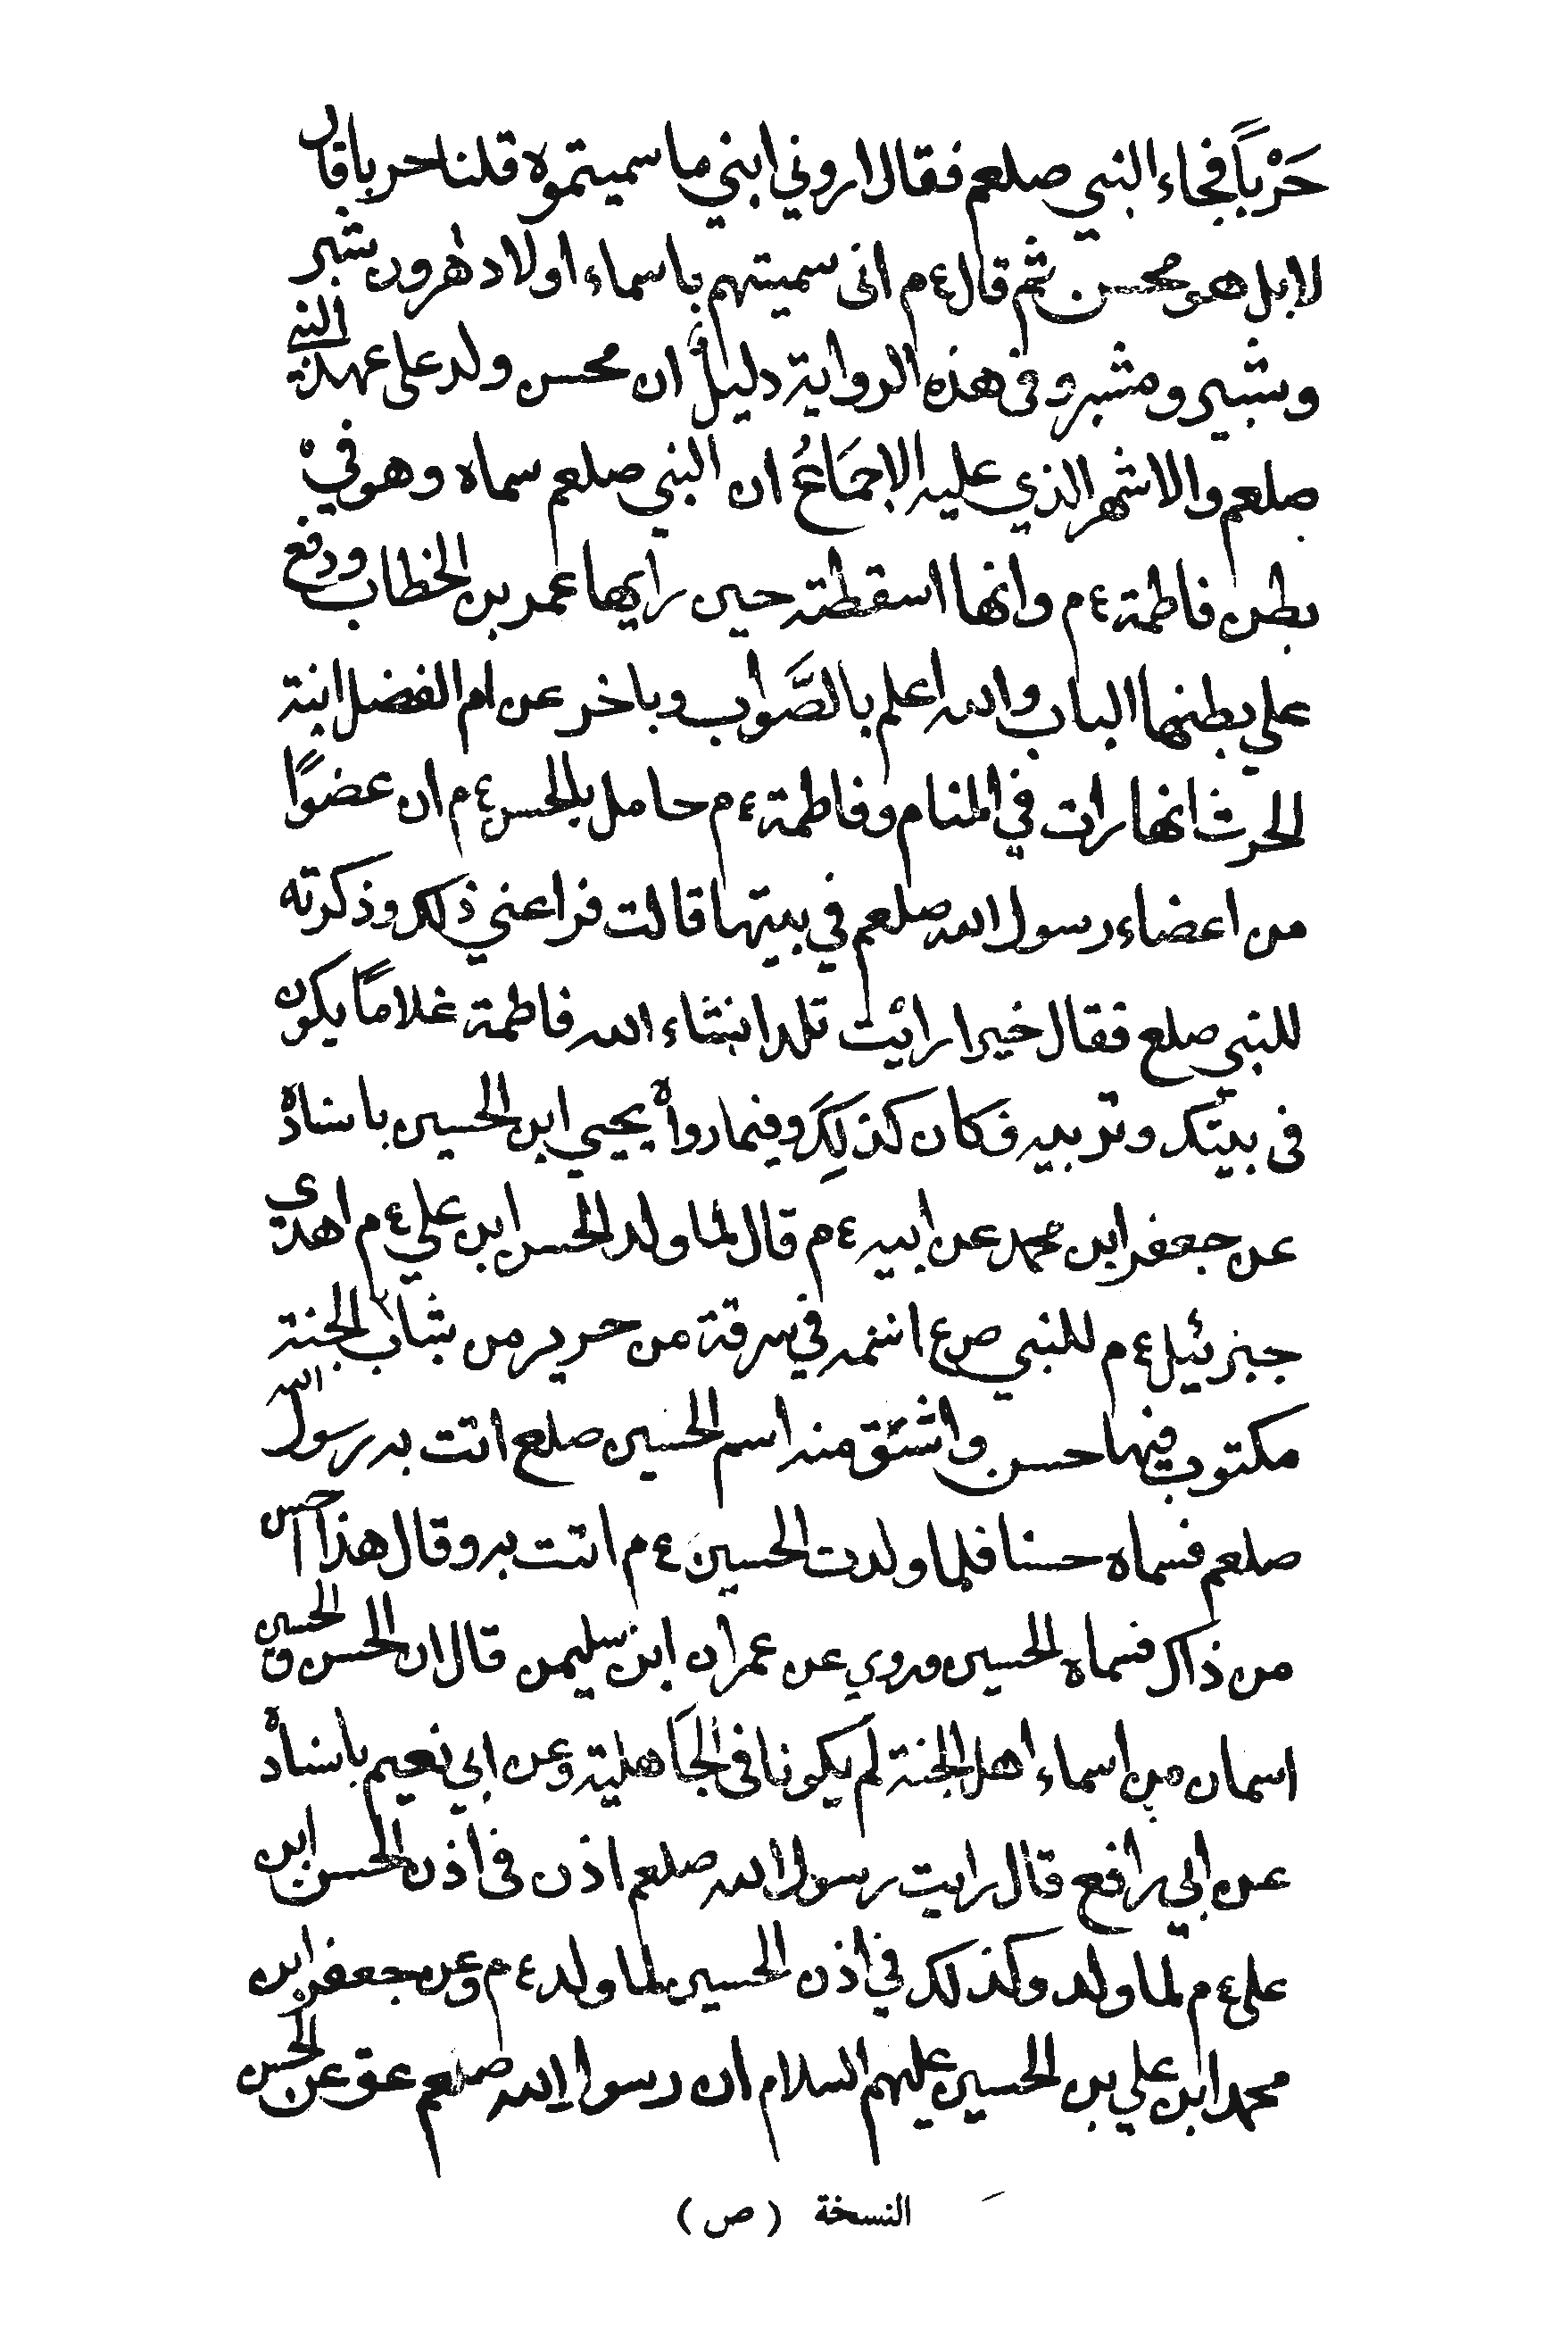 حَرْباً فجاء النبي صلعم فقال اروني ابني ما سميتموه قلنا حربا قال
لا بل هو محسن ثم قال ع م انى سميتهم باسماء اولاد هرون شبر
وشبير ومشبر و فى هذه الرواية دليلٌ ان محسن ولد على عهد النبي
صلعم والاشهر الذي عليه الاجمَاعُ ان النبي صلعم سماه وهو في
بطن فاطمة ع م وانها اسقطته حين رايها عمر بن الخطاب ودفع
علي بطنها الباب والله اعلم بالصَّواب وباخر عن ام الفضل ابنة
الحرث انها رات في المنام وفاطمة ع م حامل بالحسن ع م ان عضوًا
من اعضاء رسول الله صلعم في بيتها قالت فراعني ذلك وذكرته
للنبي صلع فقال خيرا رايت تلد انشاء الله فاطمة غلاماً يكون
فى بيتك وتربيه فكان كذلِكَ وفيما رواه يحيي ابن الحسين باسناده
عن جعفر ابن محمد عن ابيه ع م قال لما ولد الحسن ابن علي ع م اهدى
جبرئيل ع م للنبي ص ع اسمه في سرقة من حرير من ثياب الجنة
مكتوب فيها حسن واشتق منه اسم الحسين صلع اتت به رسول الله
صلعم فسماه حسنا فلما ولدت الحسين ع م اتت به وقال هذا احسن
من ذاك فسماه الحسين وروي عن عمران ابن سليمن قال ان الحسن والحسين
اسمان من اسماء اهل الجنة لم يكونا فى الجَاهلية وعن ابي نعيم باسناده
عن ابي رافع قال رايت رسول الله صلعم اذن فى اذن الحسن ابن
على ع م لما ولد وكذلك في اذن الحسين لما ولد ع م وعن جعفر ابن
محمد ابن علي بن الحسين عليهم السلام ان رسول الله صلعم عق عن الحسن
النسخة ( ص )